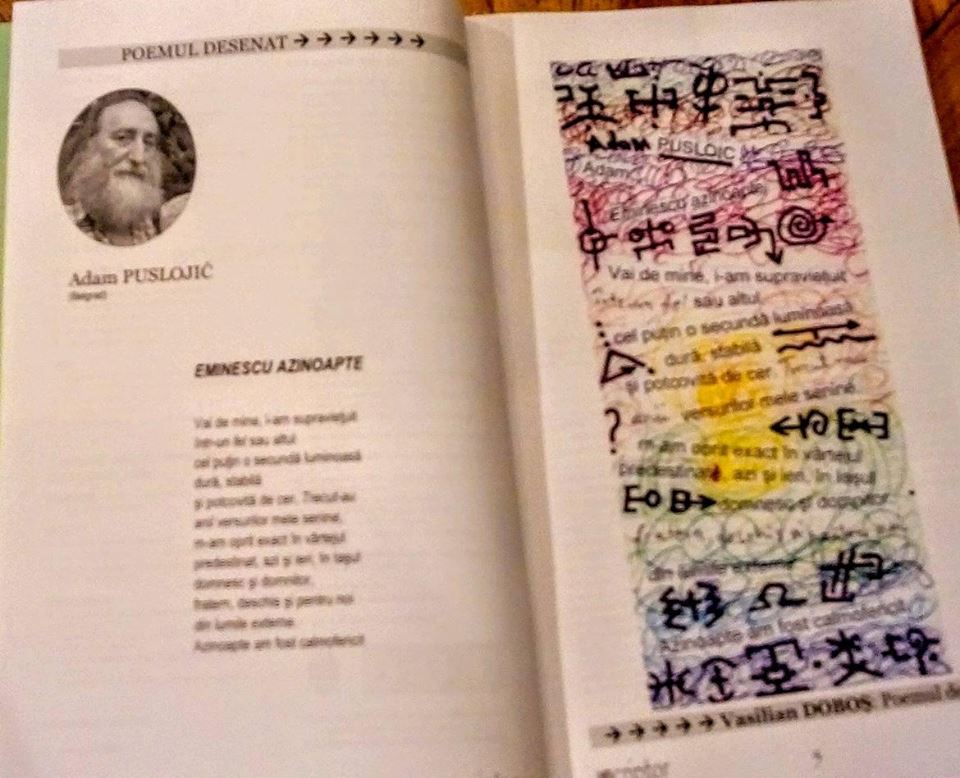 POEMUL DESENAT → → → → → →
Adam PUSLOJIĆ
(Belgrad)
EMINESCU AZINOAPTE
Vai de mine, i-am supraviețuit
într-un fel sau altul
cel puțin o secundă luminoasă
dură, stabilă
și potcovită de cer. Trecut-au
anii versurilor mele senine,
m-am oprit exact în vârtejul
predestinat, azi și ieri, în Iașul
domnesc și domnitor,
fratern, deschis și pentru noi
din lumile externe.
Azinoapte am fost catinofericit
Adam PUSLOIC
Adam
Eminescu azinoapte
Vai de mine, i-am supraviețuit
sau altul
cel puțin o secundă luminoasă
dură, stabilă
și potcovită de cer.
versurilor mele senine
?
m-am oprit exact în vârtejul
predestinat, azi și ieri, în Iașul
domnesc și domnitor
din lumile externe
Ω
Azinoapte am fost catinofericit
→ → → → → Vasilian DOBOȘ. Poemul
5